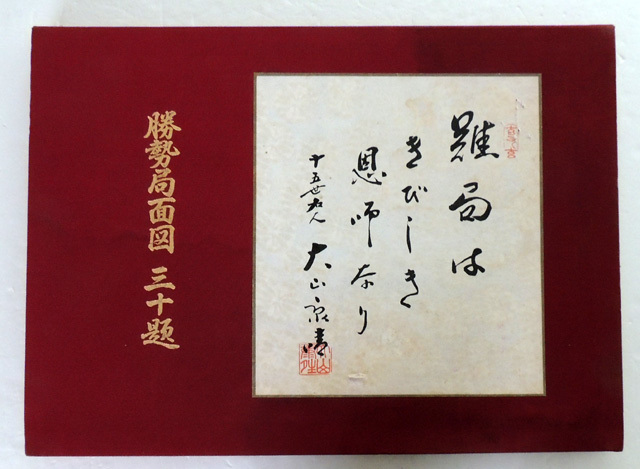 難局は
きびしき
恩師なり
十五世名人
大山康晴
勝勢局面図 三十題